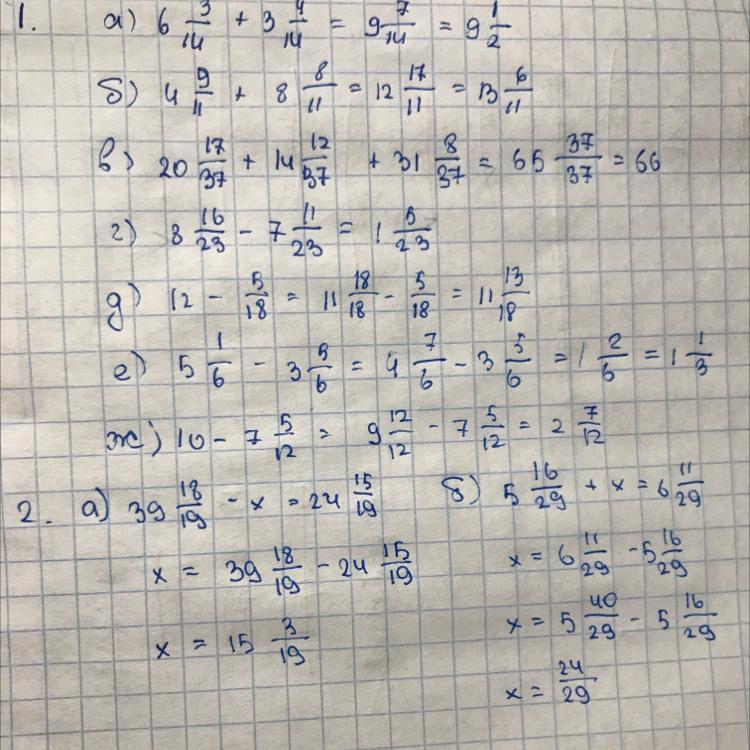 1. а) 6 3/14 + 3 4/14 = 9 7/14 = 9 1/2
б) 4 9/11 + 8 8/11 = 12 17/11 = 13 6/11
в) 20 17/37 + 14 12/37 + 31 8/37 = 65 37/37 = 66
г) 8 16/23 - 7 11/23 = 1 5/23
д) 12 - 5/18 = 11 18/18 - 5/18 = 11 13/18
е) 5 1/6 - 3 5/6 = 4 7/6 - 3 5/6 = 1 2/6 = 1 1/3
ж) 10 - 7 5/12 = 9 12/12 - 7 5/12 = 2 7/12
2. а) 39 18/19 - x = 24 15/19
x = 39 18/19 - 24 15/19
x = 15 3/19
б) 5 16/29 + x = 6 11/29
x = 6 11/29 - 5 16/29
x = 5 40/29 - 5 16/29
x = 24/29